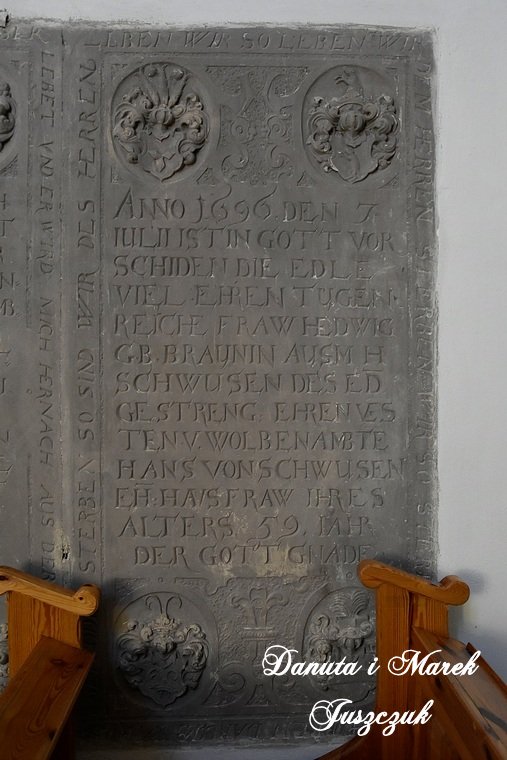 LEBEN WIR SO LEBEN WIR
DEM HERREN STERBEN WIR SO
STERBEN SO SIND WIR DES HERREN
LEBET UNDER WIRD MICH HERNACH AUS DER
ANNO 1696. DEN 7
IULII IST IN GOTT VOR
SCHIDEN DIE EDLE
VIEL. EHREN TUGEN
REICHE FRAW HEDWIG
G.B. BRAUNIN AUSM H
SCHWUSEN DES ED
GESTRENG: EHREN VES
TEN V. WOLBENAMBTE
HANS VON SCHWUSEN
EH. HAUSFRAW IHRES
ALTERS 59. IAHR
DER GOTT GNADE
Danuta i Marek
Juszczuk